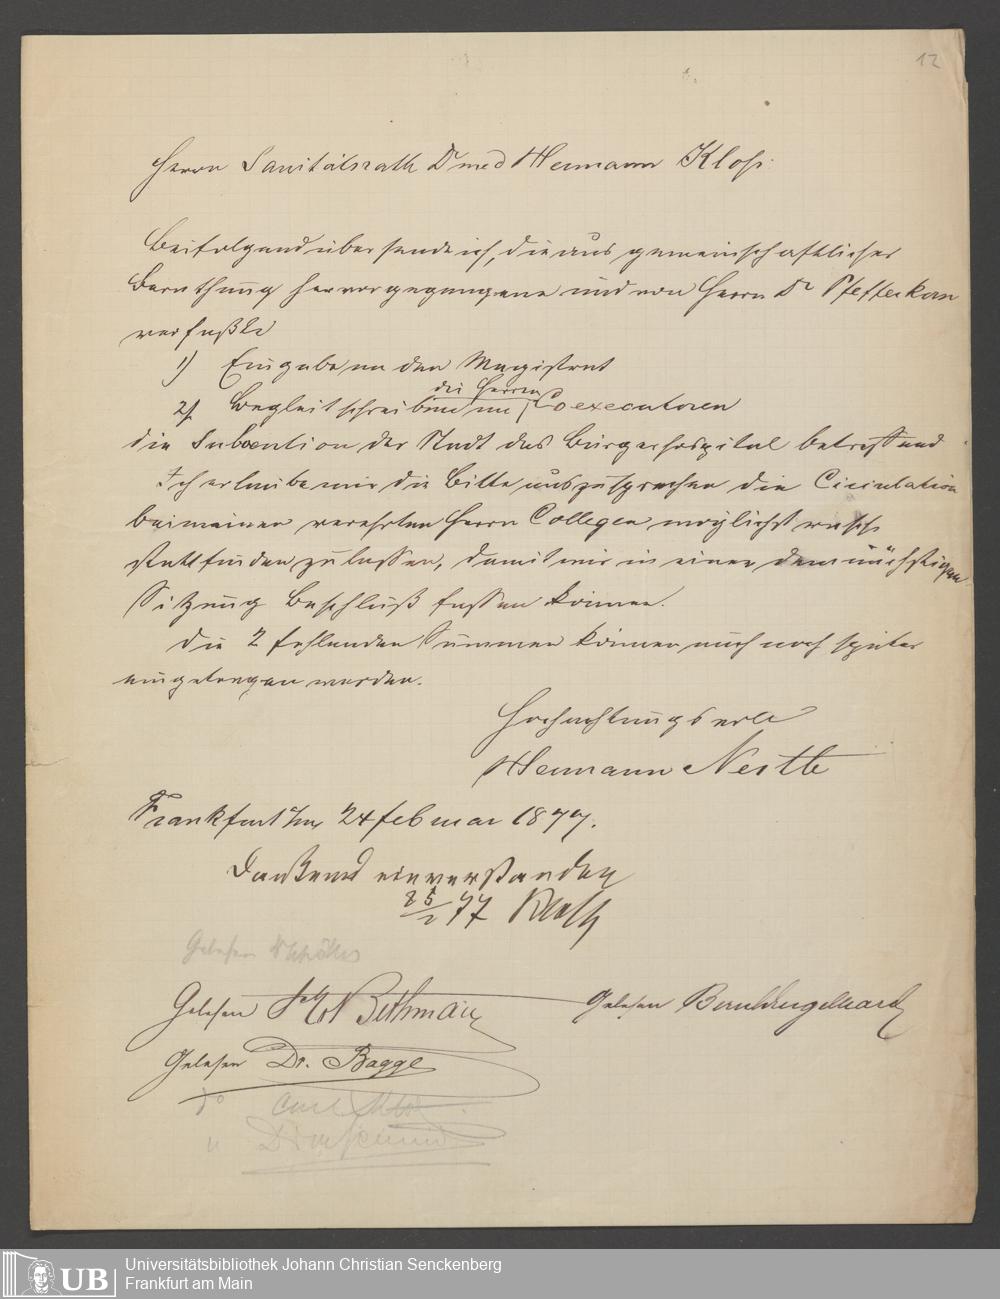 12
Herrn Sanitätsrath Dr med Hermann Kloß.
Beifolgend übersende ich, die aus gemeinschaftlicher
Berathung hervorgegangene und von Herrn Dr Pfefferkorn
verfaßte
1) Eingabe an den Magistrat
2) Begleitschreiben an die Herren Coexecutoren
die Subvention der Stadt das Bürgerhospital betreffend
Ich erlaube mir die Bitte auszusprechen die Circulation
bei meinen verehrten Herrn Collegen möglichst rasch
stattfinden zu lassen, damit wir in einer demnächstigen
Sitzung Beschluß fassen können.
Die 2 fehlenden Summen können auch noch später
eingetragen werden.
Hochachtungsvoll
Hermann Nestle
Frankfurt a/m 24 februar 1877.
Dankend einverstanden
25/2 77 Kloß
Gelesen
Gelesen Bethmann
Gelesen Bernh Engelhard
Gelesen Dr. Bagge
do Carl Kloß
"
UB
Universitätsbibliothek Johann Christian Senckenberg
Frankfurt am Main